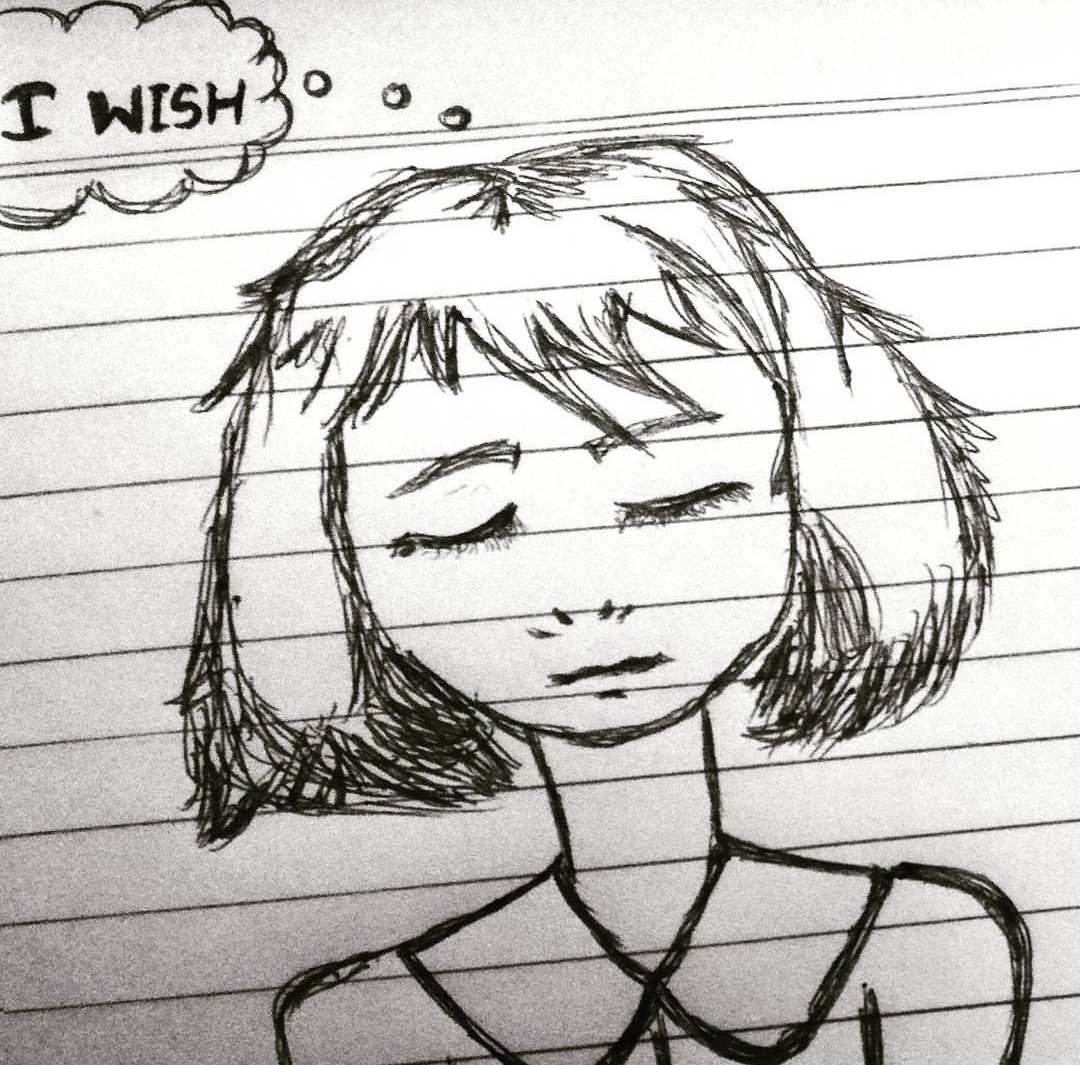 I WISH